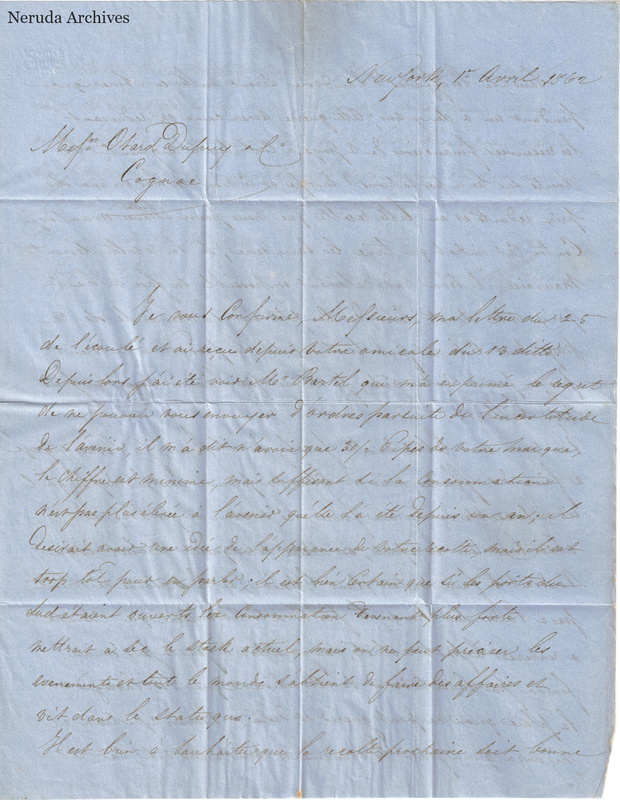 Neruda Archives
New York, 1r Avril 1862
Messrs. Otard Dupuy & Co.
Cognac
Je vous Confirme, Messieurs, ma lettre du 25
de l'écoulé et ai reçu depuis votre amicale du 13 ditto.
Depuis lors j'ai été voir Mr. Bartel qui m'a exprimé le regret
de ne pouvoir vous envoyer d'ordres par suite de l'incertitude
de l'avenir, il m'a dit n'avoir que Pipes de votre marque,
le Chiffre est minime, mais suffisant si la Consommation
n'est pas plus élevée à l'avenir qu'elle l'a été depuis un an; il
désirait avoir une idée de l'apparence de votre récolte, mais il est
trop tôt pour en parler; il est bien Certain que si les ports du
Sud étaient ouverts la Consommation devenant plus forte
mettrait à sec le stock actuel, mais on ne peut préciser les
evenements et tout le monde s'abstient de faire des affaires et
vit dans le statu quo.
Il est bien à souhaiter que la recolte prochaine soit bonne